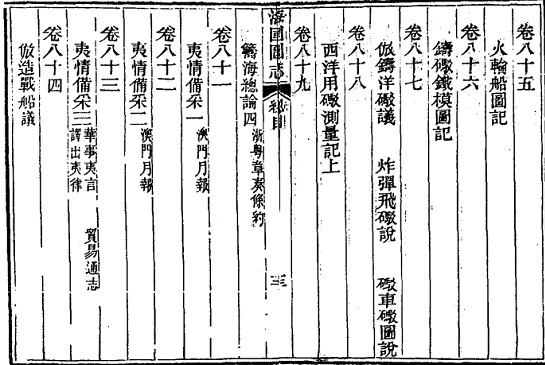 卷八十五
火輪船圖記
卷八十六
鑄礮鐵模圖記
卷八十七
倣鑄洋礮議　炸彈飛礮說　礮車礮圖說
卷八十八
西洋用礮測量記上
卷八十九
海國圖志　總目　三
籌海總論四　浙粵章奏條約
卷八十一
夷情備采一　澳門月報
卷八十二
夷情備采二　澳門月報
卷八十三
夷情備采三　華事夷言　貿易通志
譯出夷律
卷八十四
倣造戰船議